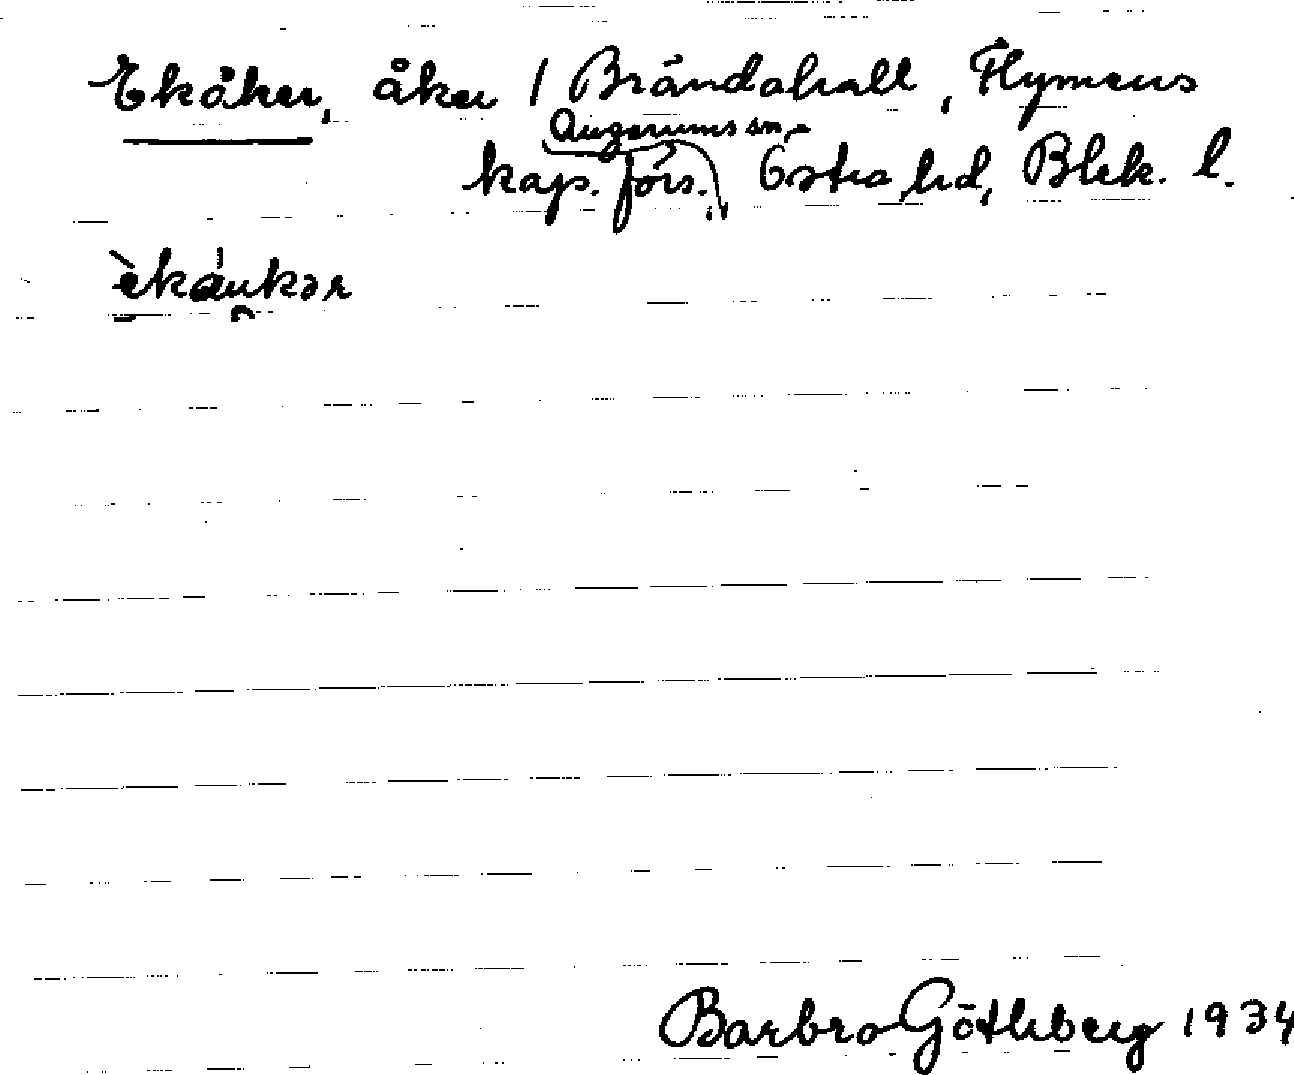 Ekåker, åker i Brändahall, Flymens
Augerums sn,
kap. förs., Östra hd, Blek. l.
èkáukər
Barbro Göthberg 1934